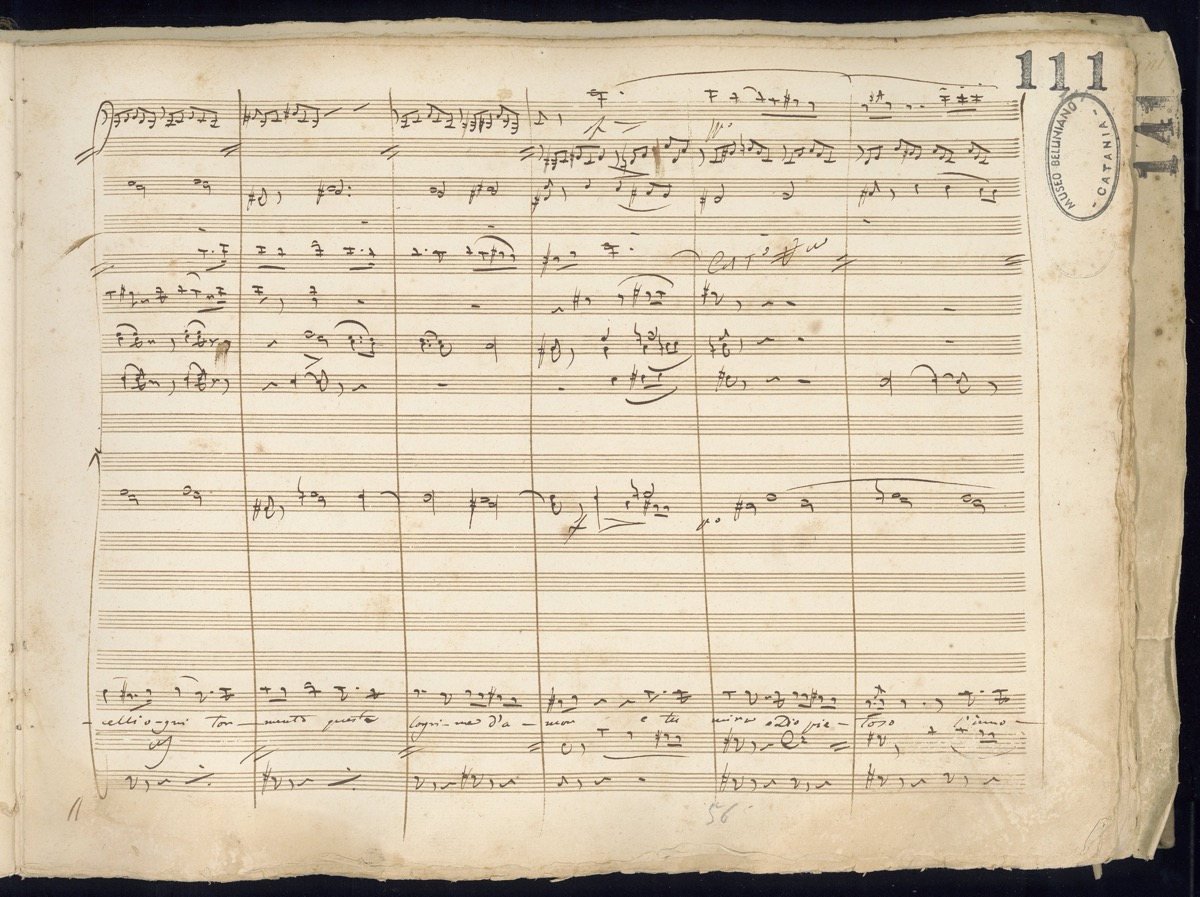 111
141
MUSEO BELLINIANO
- CATANIA -
po
Col
f
po
- celli o-gni tor - mento queste lagri-me d'a - mor e tu mira o Dio pie - toso l'amo -
56